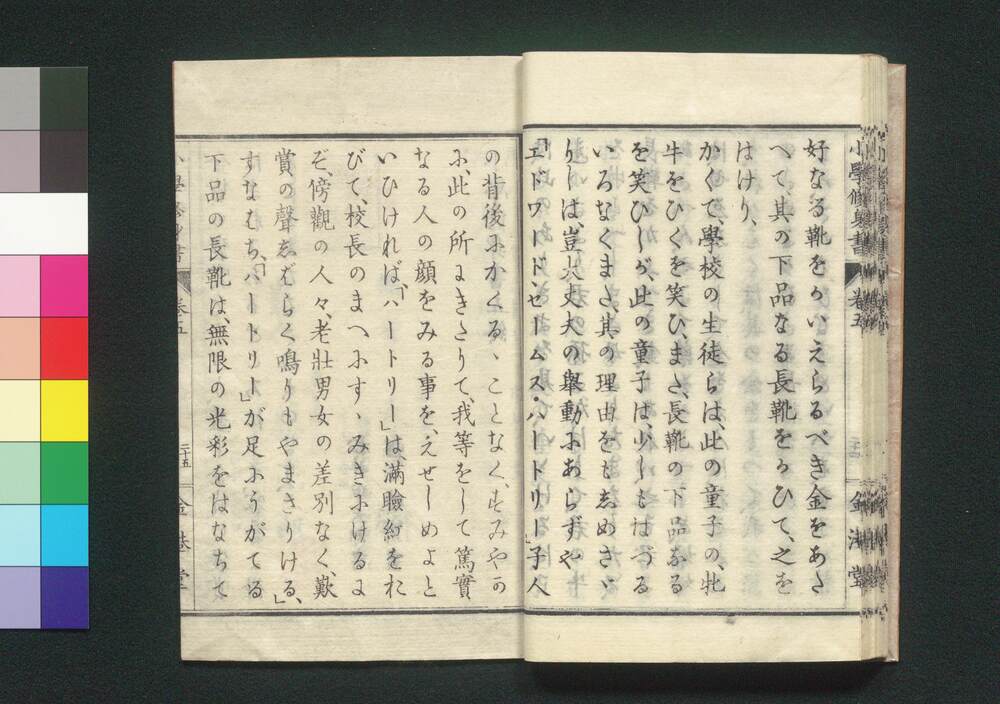 好なる靴をかいえらるべき金をあた
へて其の下品なる長靴をかひて、之を
はけり、
かくて、學校の生徒らは、此の童子の、牝
牛をひくを笑ひ、また、長靴の下品なる
を笑ひしが、此の童子は、少しもはづる
いろなくまた、其の理由をもゑめさゞ
りしは、豈大丈夫の舉動にあらずや
「エドワード、ゼームス・ハートリー」子人
の背後にかくるゝことなく、すみやか
に、此の所にきたりて、我等をして篤實
なる人の顔をみる事を、えせしめよと
いひければ、「ハートリー」は、滿瞼紅をお
びて、校長のまへにすゝみきにけるに
ぞ、傍觀の人々、老壯男女の差別なく、歎
賞の聲ゑばらく鳴りもやまざりける、」
すなはち、「ハートリー」が足にうがてる
下品の長靴は、無限の光彩をはなちて
小學修身書 卷五
金港堂
卷五 二十五 金港堂